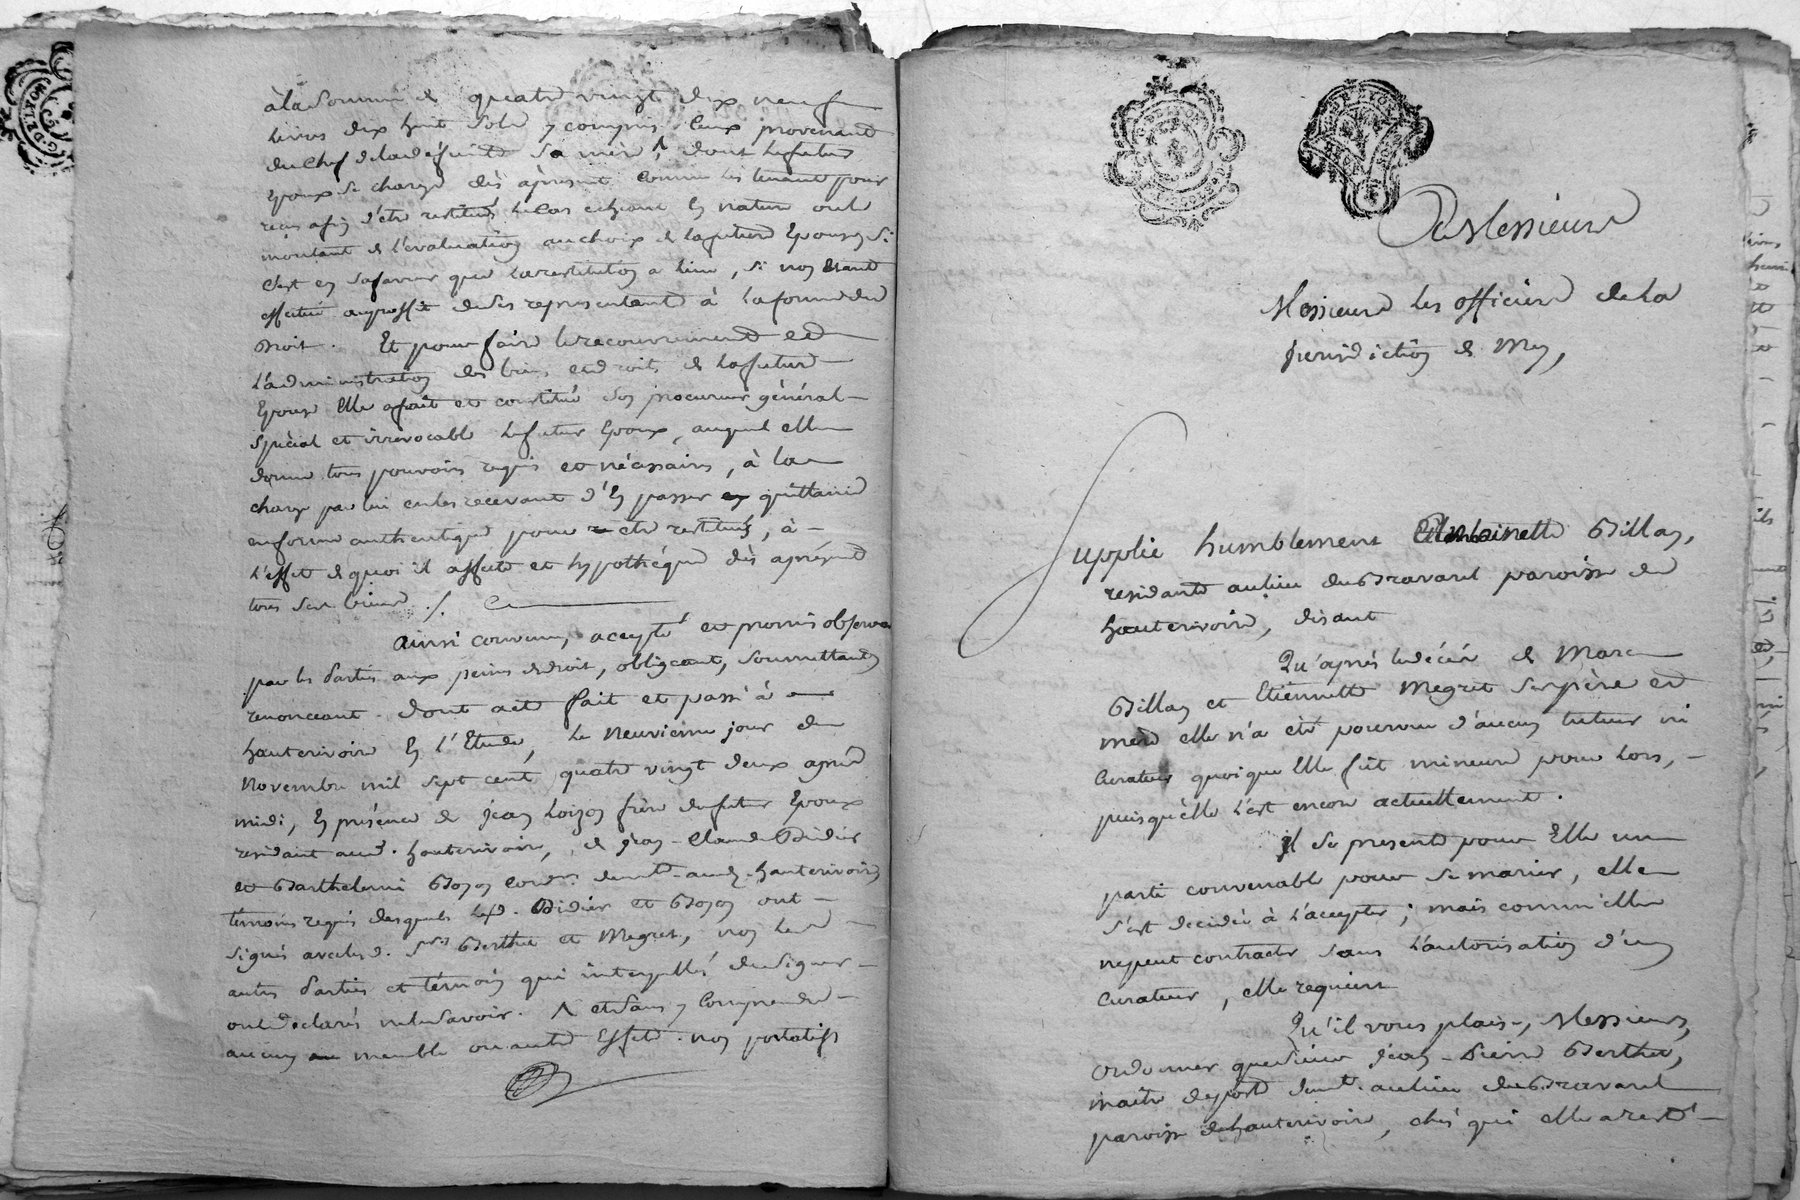 à la somme de quatre vingt dix neuf
livres dix huit sols y compris ceux provenant
du chef de la défunte sa mère Λ dont le futur
Epoux se charge dès àprésent comme les tenant pour
reçus afin d'etre restitués le cas echeant En nature ou le
montant de l'evaluation au choix de la future Epouse, Si
c'est en sa faveur que la restitution a lieu, Si non Etant
effectué au proffit de ses representants à la forme du
Droit. Et pour faire le recouvrement et
l'administration des biens et droits de la future
Epouse Elle a fait et constitué son procureur général
Spécial et irrévocable le futur Epoux, auquel elle
donne tous pouvoirs requis et nécessaires, à la
charge par lui en les recevant d'En passer quittance
en forme authentique pour etre restitués, à
l'effet de quoi il affecte et hypothéque dès aprésent
tous ses biens ./.
Ainsi convenu, accepté et promis observer
par les Parties aux peines de droit, obligeant, soumettant,
renonceant. Dont acte fait et passé à
hauterivoire En l'Etude, le neuvieme jour de
Novembre mil sept cent quatre vingt deux après
midi, En présence de Jean frère du futur Epoux
residant aud. hauterivoire, de Jean-Claude Didier
et Barthelemi demt. aud. hauterivoire
témoins requis desquels led. Didier et ont
signés avec led. Srs Berthet et Megret, non les
autres Parties et témoin qui interpellés de signer
ont declarés ne le savoir. Λ et sans y comprendre
aucun meuble ou autre Effet. non portatifs
A Messieurs
Messieurs les officiers de la
Jurisdiction de
Supplie humblement Antoinette Billas,
residante au lieu du Bravard paroisse de
hauterivoire, disant
Qu'après le décés de Marc
Billas et Etiennette Megret ses père et
mère elle n'a été pourvue d'aucun tuteur ni
Curateur quoique Elle fut mineure pour lors,
puisqu'elle l'est encore actuellement.
Il se presente pour Elle un
parti convenable pour se marier, elle
s'est decidée à l'accepter; mais comm'elle
ne peut contracter sans l'autorisation d'un
Curateur, elle requiert
Qu'il vous plaise, Messieurs,
ordonner que sieur Jean-Pierre Berthet,
maitre de poste demt. au lieu du Bravard
paroisse de hauterivoire, chés qui elle a resté